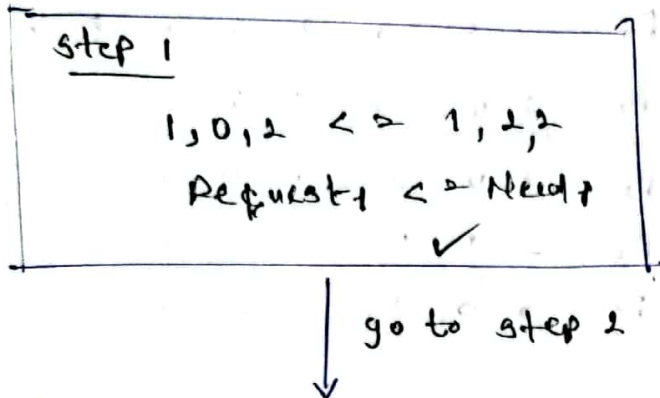 step 1
1,0,2 <= 1,2,2
Request1 <= Need1
✓
go to step 2